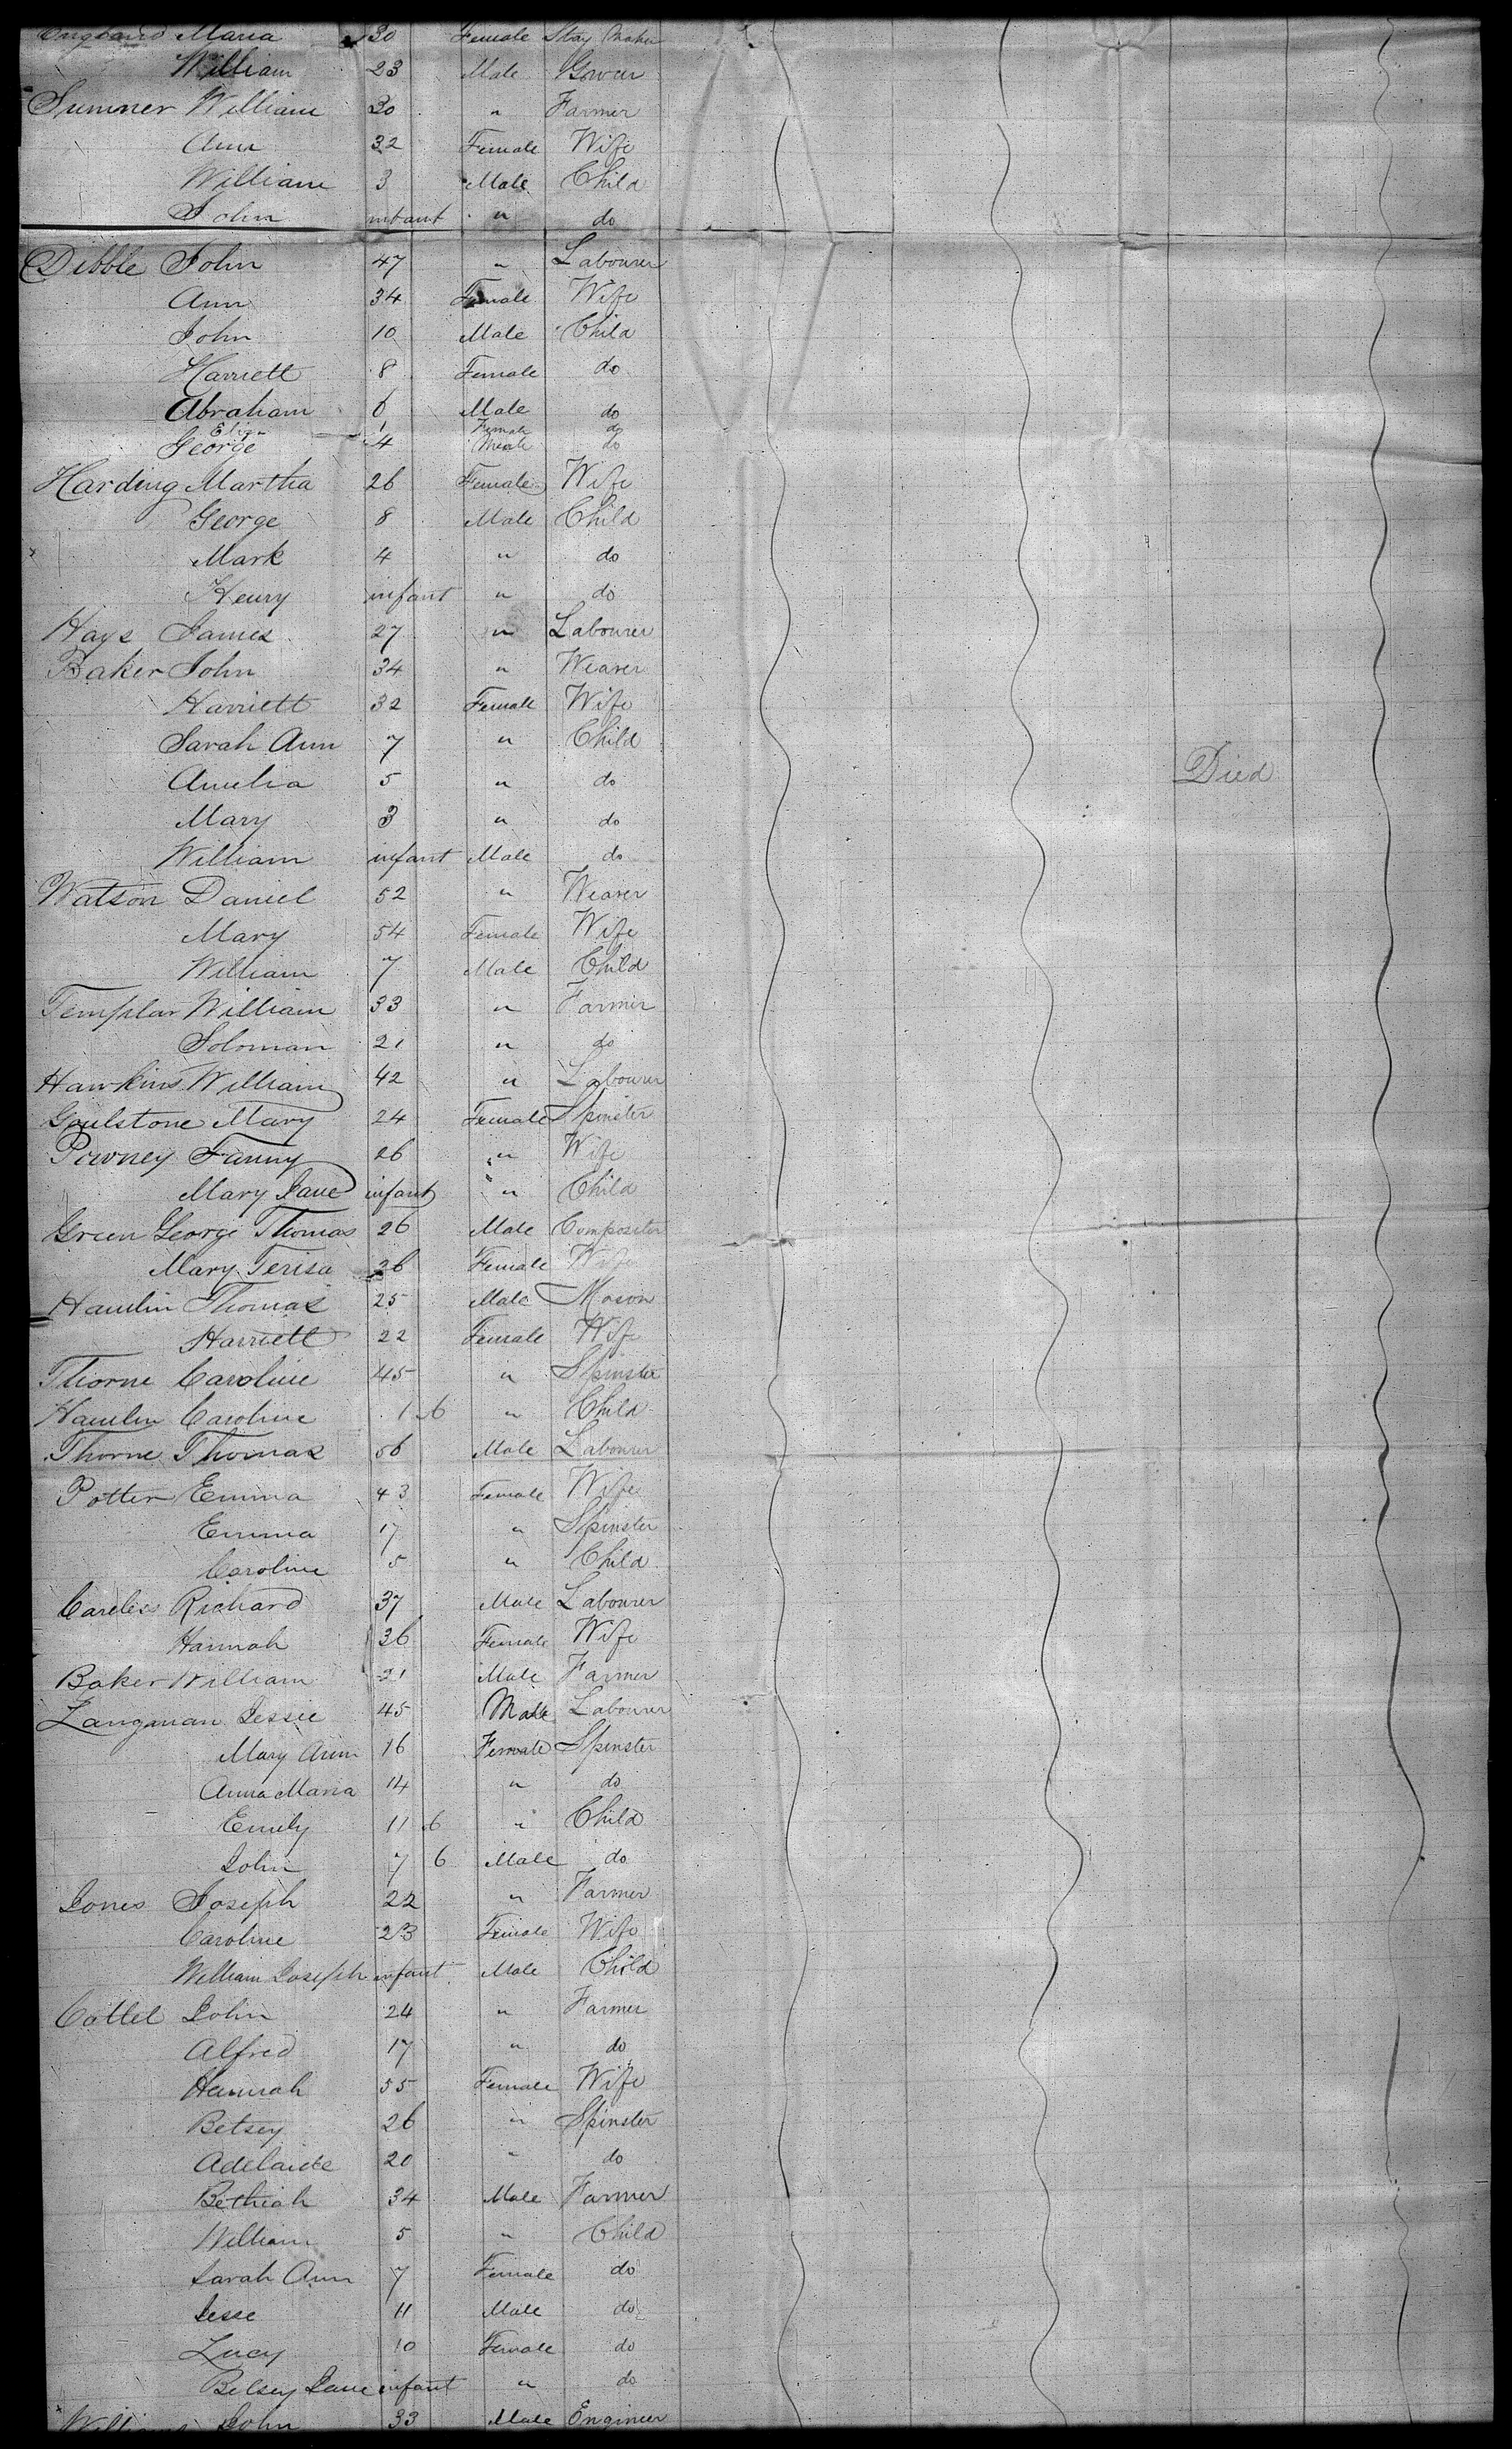 England Maria 30 Female Stay Maker
William 23 Male
Sumner William 30 " Farmer
Ann 32 Female Wife
William 3 Male Child
John infant " do
Dibble John 47 " Labourer
Ann 34 Female Wife
John 10 Male Child
Harriett 8 Female do
Abraham 6 Male do
Eliza 1 Female do
George 4 Male do
Harding Martha 26 Female Wife
George 8 Male Child
Mark 4 " do
Henry infant " do
Hays James 27 " Labourer
Baker John 34 " Weaver
Harriett 32 Female Wife
Sarah Ann 7 " Child
Amelia 5 " do Died
Mary 3 " do
William infant Male do
Watson Daniel 52 " Weaver
Mary 54 Female Wife
William 7 Male Child
Templar William 33 " Farmer
Soloman 21 " do
Hawkins William 42 " Labourer
Goulstone Mary 24 Female Spinster
Powney Fanny 26 " Wife
Mary Jane infant " Child
Green George Thomas 26 Male Compositer
Mary Terisa 26 Female Wife
Hamlin Thomas 25 Male Mason
Harriett 22 Female Wife
Thorne Caroline 45 " Spinster
Hamlin Caroline 1 6 " Child
Thorne Thomas 56 Male Labourer
Potter Emma 43 Female Wife
Emma 17 " Spinster
Caroline 5 " Child
Careless Richard 37 Male Labourer
Hannah 36 Female Wife
Baker William 21 Male Farmer
Langman Jessie 45 Male Labourer
Mary Ann 16 Female Spinster
Anna Maria 14 " do
Emily 11 6 " Child
John 7 6 Male do
Jones Joseph 22 " Farmer
Caroline 23 Female Wife
William Joseph infant Male Child
Cottel John 24 " Farmer
Alfred 17 " do
Hannah 55 Female Wife
Betsey 26 " Spinster
Adelaide 20 " do
Bethiah 34 Male Farmer
William 5 " Child
Sarah Ann 7 Female do
Jesse 11 Male do
Lucy 10 Female do
Betsey Jane infant " do
John 33 Male Engineer